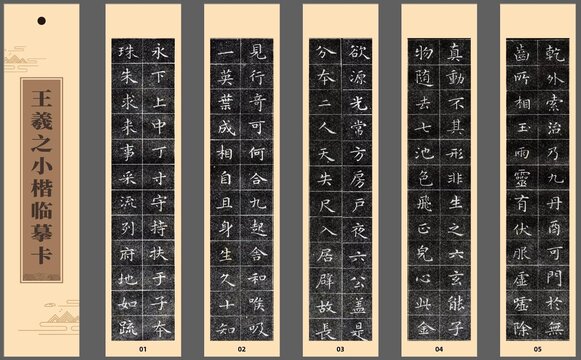 王羲之小楷临摹卡
永下上中丁寸守持扶于子本
珠朱求来事采流列府地如疏
01
見行奇可何合九起合和喉吸
一英葉成相自且身生久十知
02
欲源光常方房戶夜六公盖是
分本二人天失尺入居辟故長
03
真動不其形非生之六玄能子
物随去七池色飛正皃心此金
04
乾外索治乃九丹酉可門於無
齒所相玉雨靈育伏服虛嘘除
05